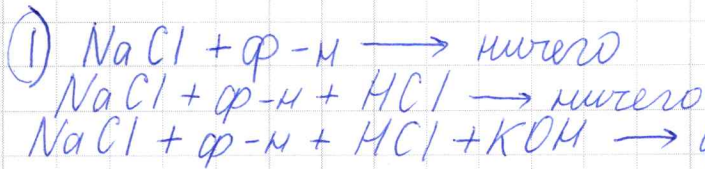 ① NaCl + ф-н ⟶ ничего
NaCl + ф-н + HCl ⟶ ничего
NaCl + ф-н + HCl + KOH ⟶